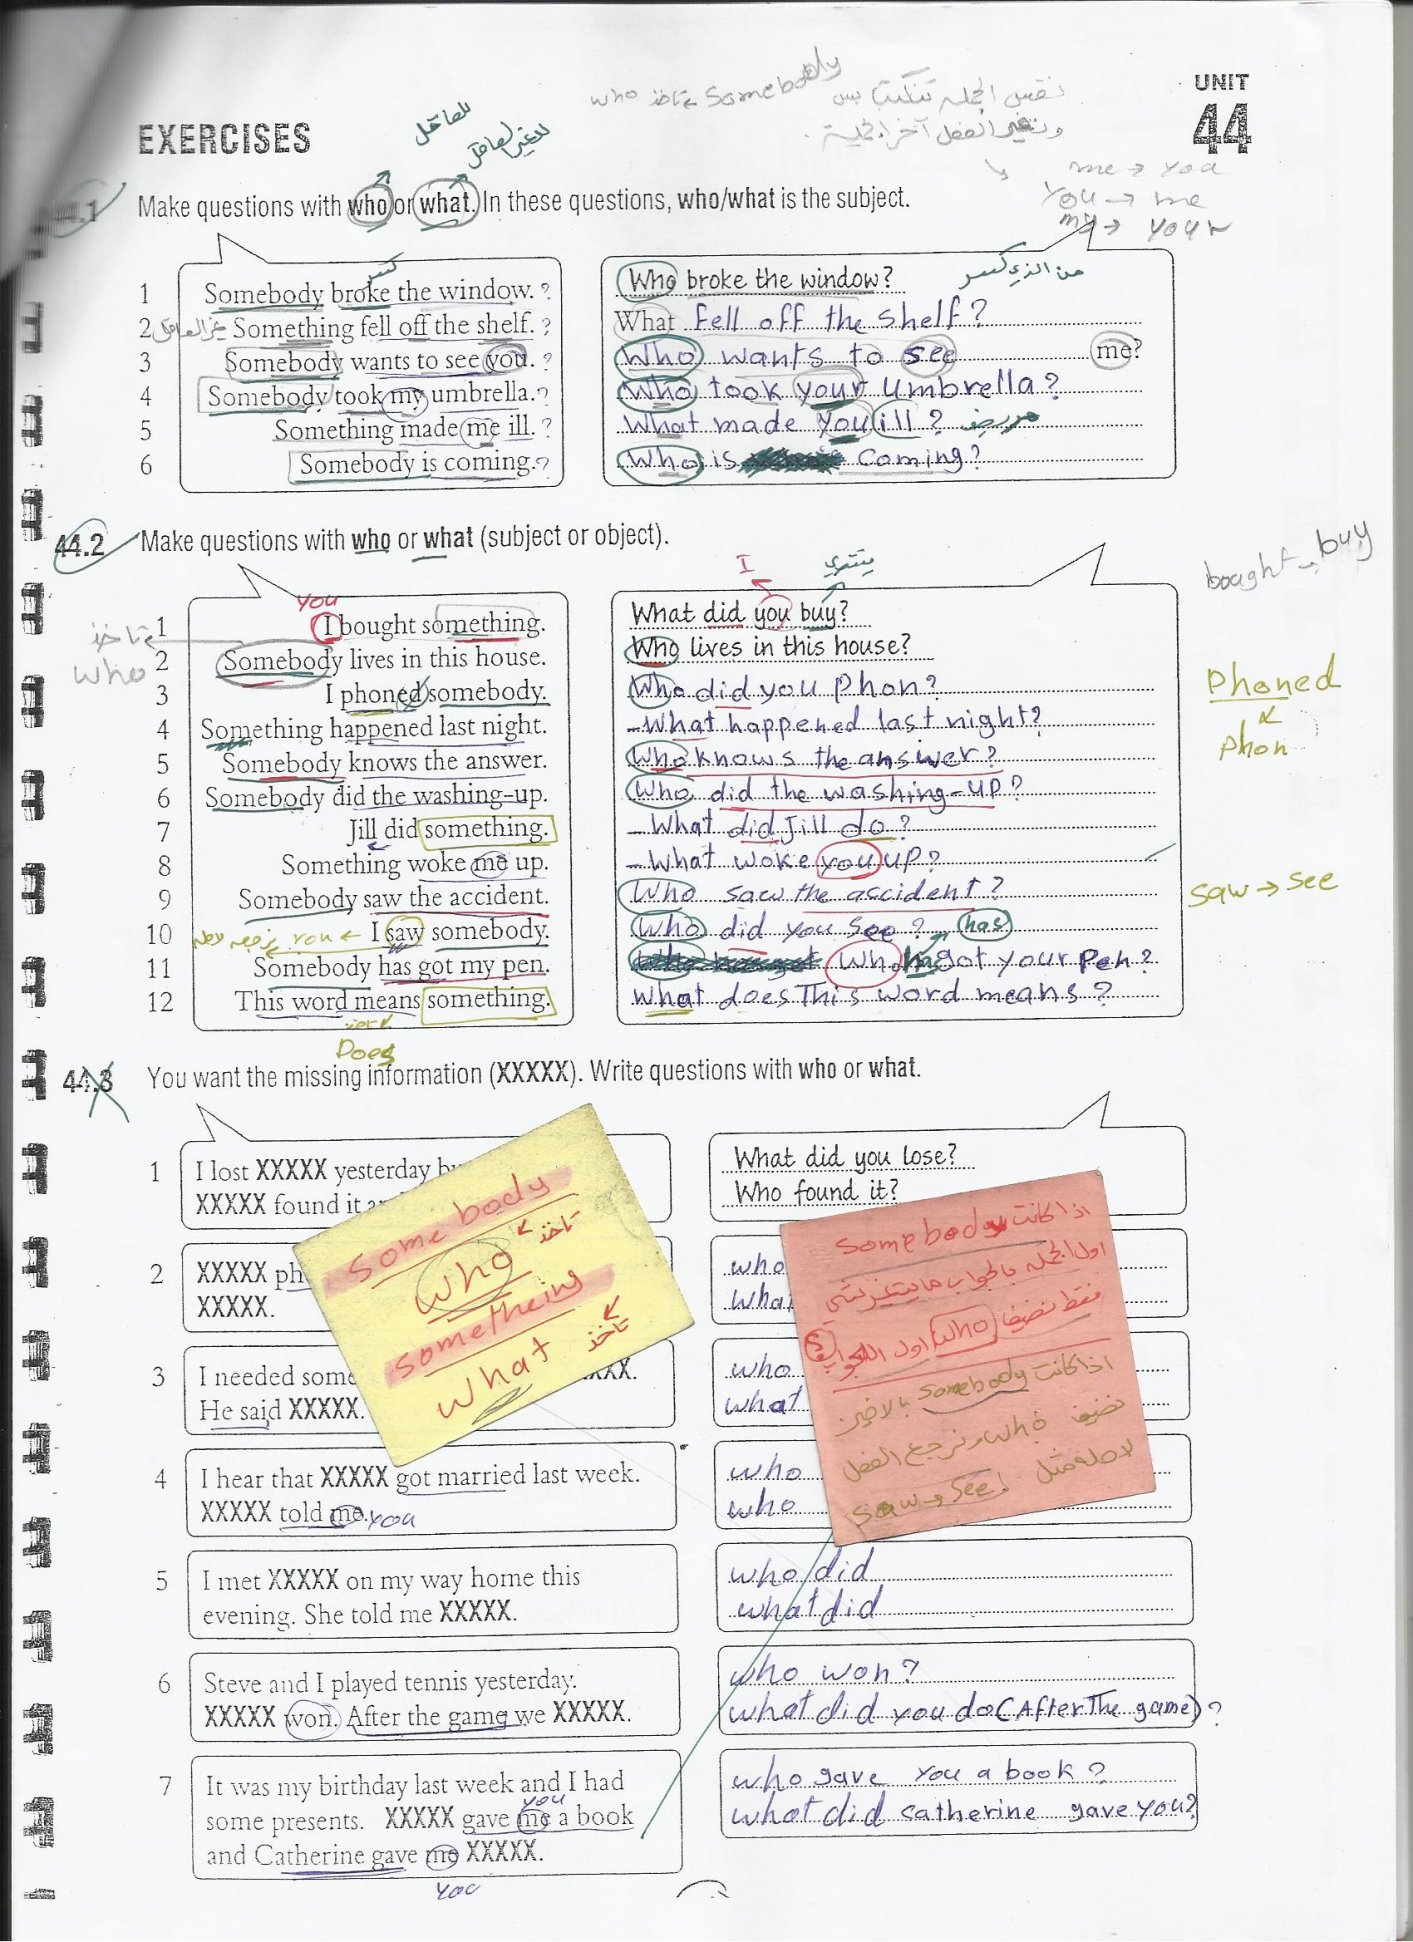 who تاخذ Somebody
نفس الجمله تنكتب بس
ونغير الفعل آخر الجملة
UNIT
44
me → you
you → me
my → your
EXERCISES
للعاقل
للغير العاقل
44.1 Make questions with who or what. In these questions, who/what is the subject.
1 Somebody broke the window. ?
كسر
Who broke the window?
من الذي كسر
2 Something fell off the shelf. ?
غير العاقل
What fell off the shelf?
3 Somebody wants to see you. ?
Who wants to see me?
4 Somebody took my umbrella. ?
Who took your umbrella?
5 Something made me ill. ?
What made you ill? مريض
6 Somebody is coming. ?
Who is coming?
44.2 Make questions with who or what (subject or object).
bought → buy
you
I
يشتري
1 I bought something.
What did you buy?
تاخذ
who
2 Somebody lives in this house.
Who lives in this house?
3 I phoned somebody.
Who did you phon?
Phoned
phon
4 Something happened last night.
What happened last night?
5 Somebody knows the answer.
Who knows the answer?
6 Somebody did the washing-up.
Who did the washing-up?
7 Jill did something.
What did Jill do?
8 Something woke me up.
What woke you up?
9 Somebody saw the accident.
Who saw the accident?
saw → see
10 I saw somebody.
you ←
Who did you see?
has
11 Somebody has got my pen.
Who has got your pen?
12 This word means something.
What does This word means?
Does
44.3 You want the missing information (XXXXX). Write questions with who or what.
1 I lost XXXXX yesterday bu
XXXXX found it a
What did you lose?
Who found it?
2 XXXXX ph
XXXXX.
who
What
3 I needed some XXXXX.
He said XXXXX.
who
what
4 I hear that XXXXX got married last week.
XXXXX told me. you
who
who
5 I met XXXXX on my way home this
evening. She told me XXXXX.
who did
what did
6 Steve and I played tennis yesterday.
XXXXX won. After the game we XXXXX.
who won?
what did you do (After The game)?
7 It was my birthday last week and I had
some presents. XXXXX gave me a book
you
and Catherine gave me XXXXX.
you
who gave you a book?
what did catherine gave you?
somebody
who تاخذ
sometheing
what تاخذ
اذا كانت somebody
اول الجمله بالجواب ما يتغير شي
فقط نضيف who اول الجواب
اذا كانت somebody بالاخير
نضيف who ونرجع الفعل
لاصله مثل
saw → see